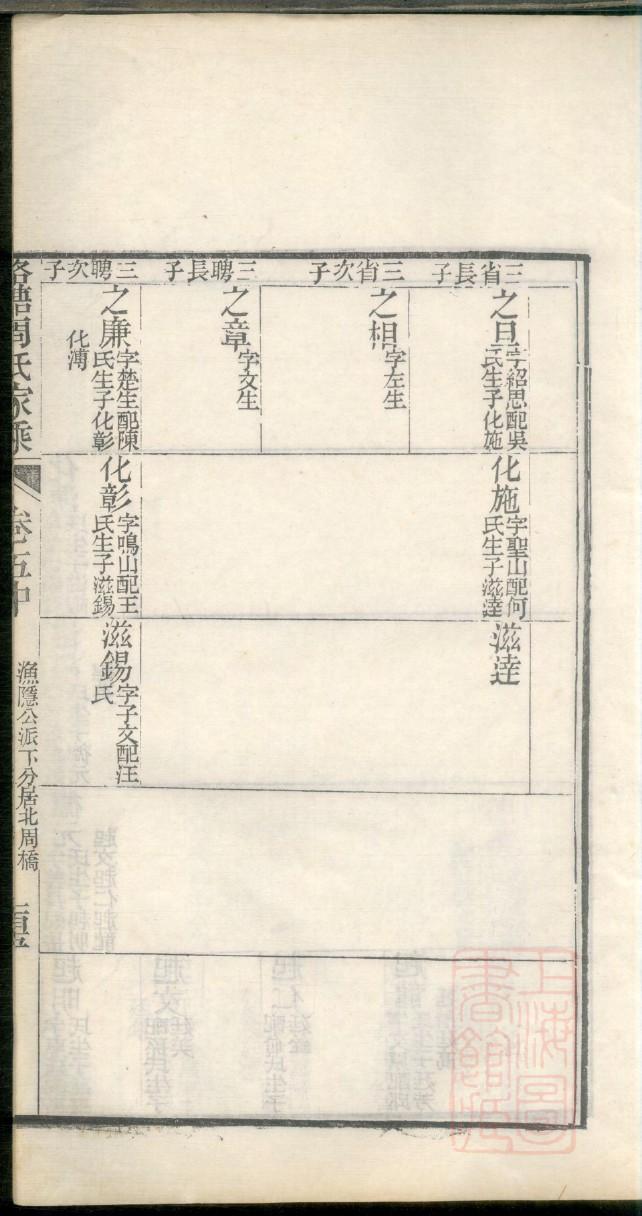 三省長子
之旦
字紹思配吳
氏生子化施
化施
字聖山配何
氏生子滋達
滋達
三省次子
之相
字左生
三聘長子
之章
字文生
三聘次子
之廉
字楚生配陳
氏生子化彰
化溥
化彰
字鳴山配王
氏生子滋錫
滋錫
字子文配汪
氏
周氏家乘
卷五中
漁隱公派下分居北周橋
上海圖
書館藏